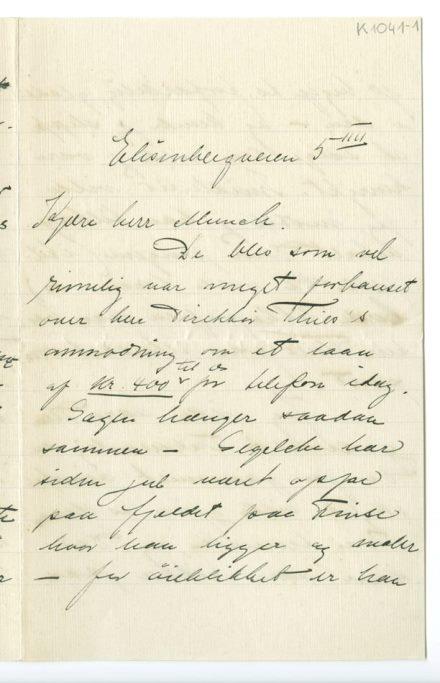 K1041-1
Elisenbergveien 5 III
Kjære herr Munch.
De blev som vel
rimelig var meget forbauset
over herr Direktør Thiis's
anmodning om et laan
af Kr. 400 til os pr telefon idag.
Sagen hænger saadan
sammen — har
siden jul været oppe
paa fjeldet paa Finse
hvor han ligger og maler
— for öieblikket er han